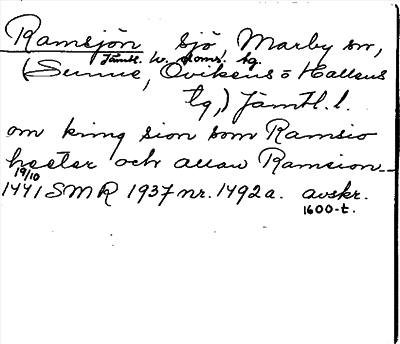 Ramsjön sjö, Marby sn,
Jämtl. v. doms. tg.
(Sunne, Ovikens o Hallens
tg,) Jämtl. l.
om kring sion som Ramsio
heeter och allan Ramsion_
19/10
1441 SMR 1937 nr. 1492a. avskr.
1600-t.